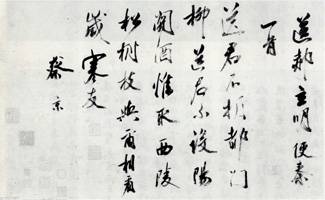 送郝玄明使秦
一首
送君不折都門
柳送君不設陽
關酒惟取西陵
松樹枝與爾相看
歲寒友
蔡京